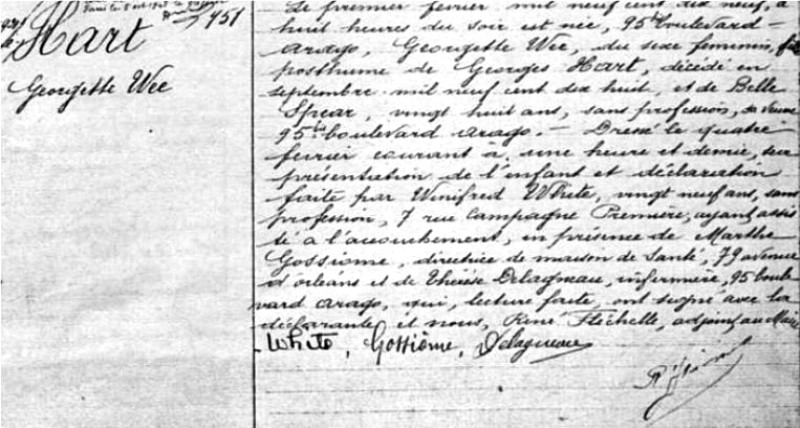 451
Hart
Georgette Wee
Le premier fevrier mil neuf cent dix neuf, à
huit heures du soir est née, 95 bis boulevard
arago, Georgette Wee, du sexe feminin, fille
posthume de Georges Hart, décédé en
septembre mil neuf cent dix huit, et de Belle
Spear, vingt huit ans, sans profession, sa veuve
95 bis boulevard arago. — Dressé le quatre
fevrier courant à une heure et demie, sur
présentation de l'enfant et déclaration
faite par Winifred White, vingt neuf ans, sans
profession, 7 rue Campagne Première, ayant assis
té à l'accouchement, en présence de Marthe
Gossiome, directrice de maison de Santé, 79 avenue
d'orléans et de Thérèse Delagneau, infirmière, 95 boule
vard arago, qui, lecture faite, ont signé avec la
déclarante et nous, René Fléchelle, adjoint au Maire
White, Gossiôme, Delagneau